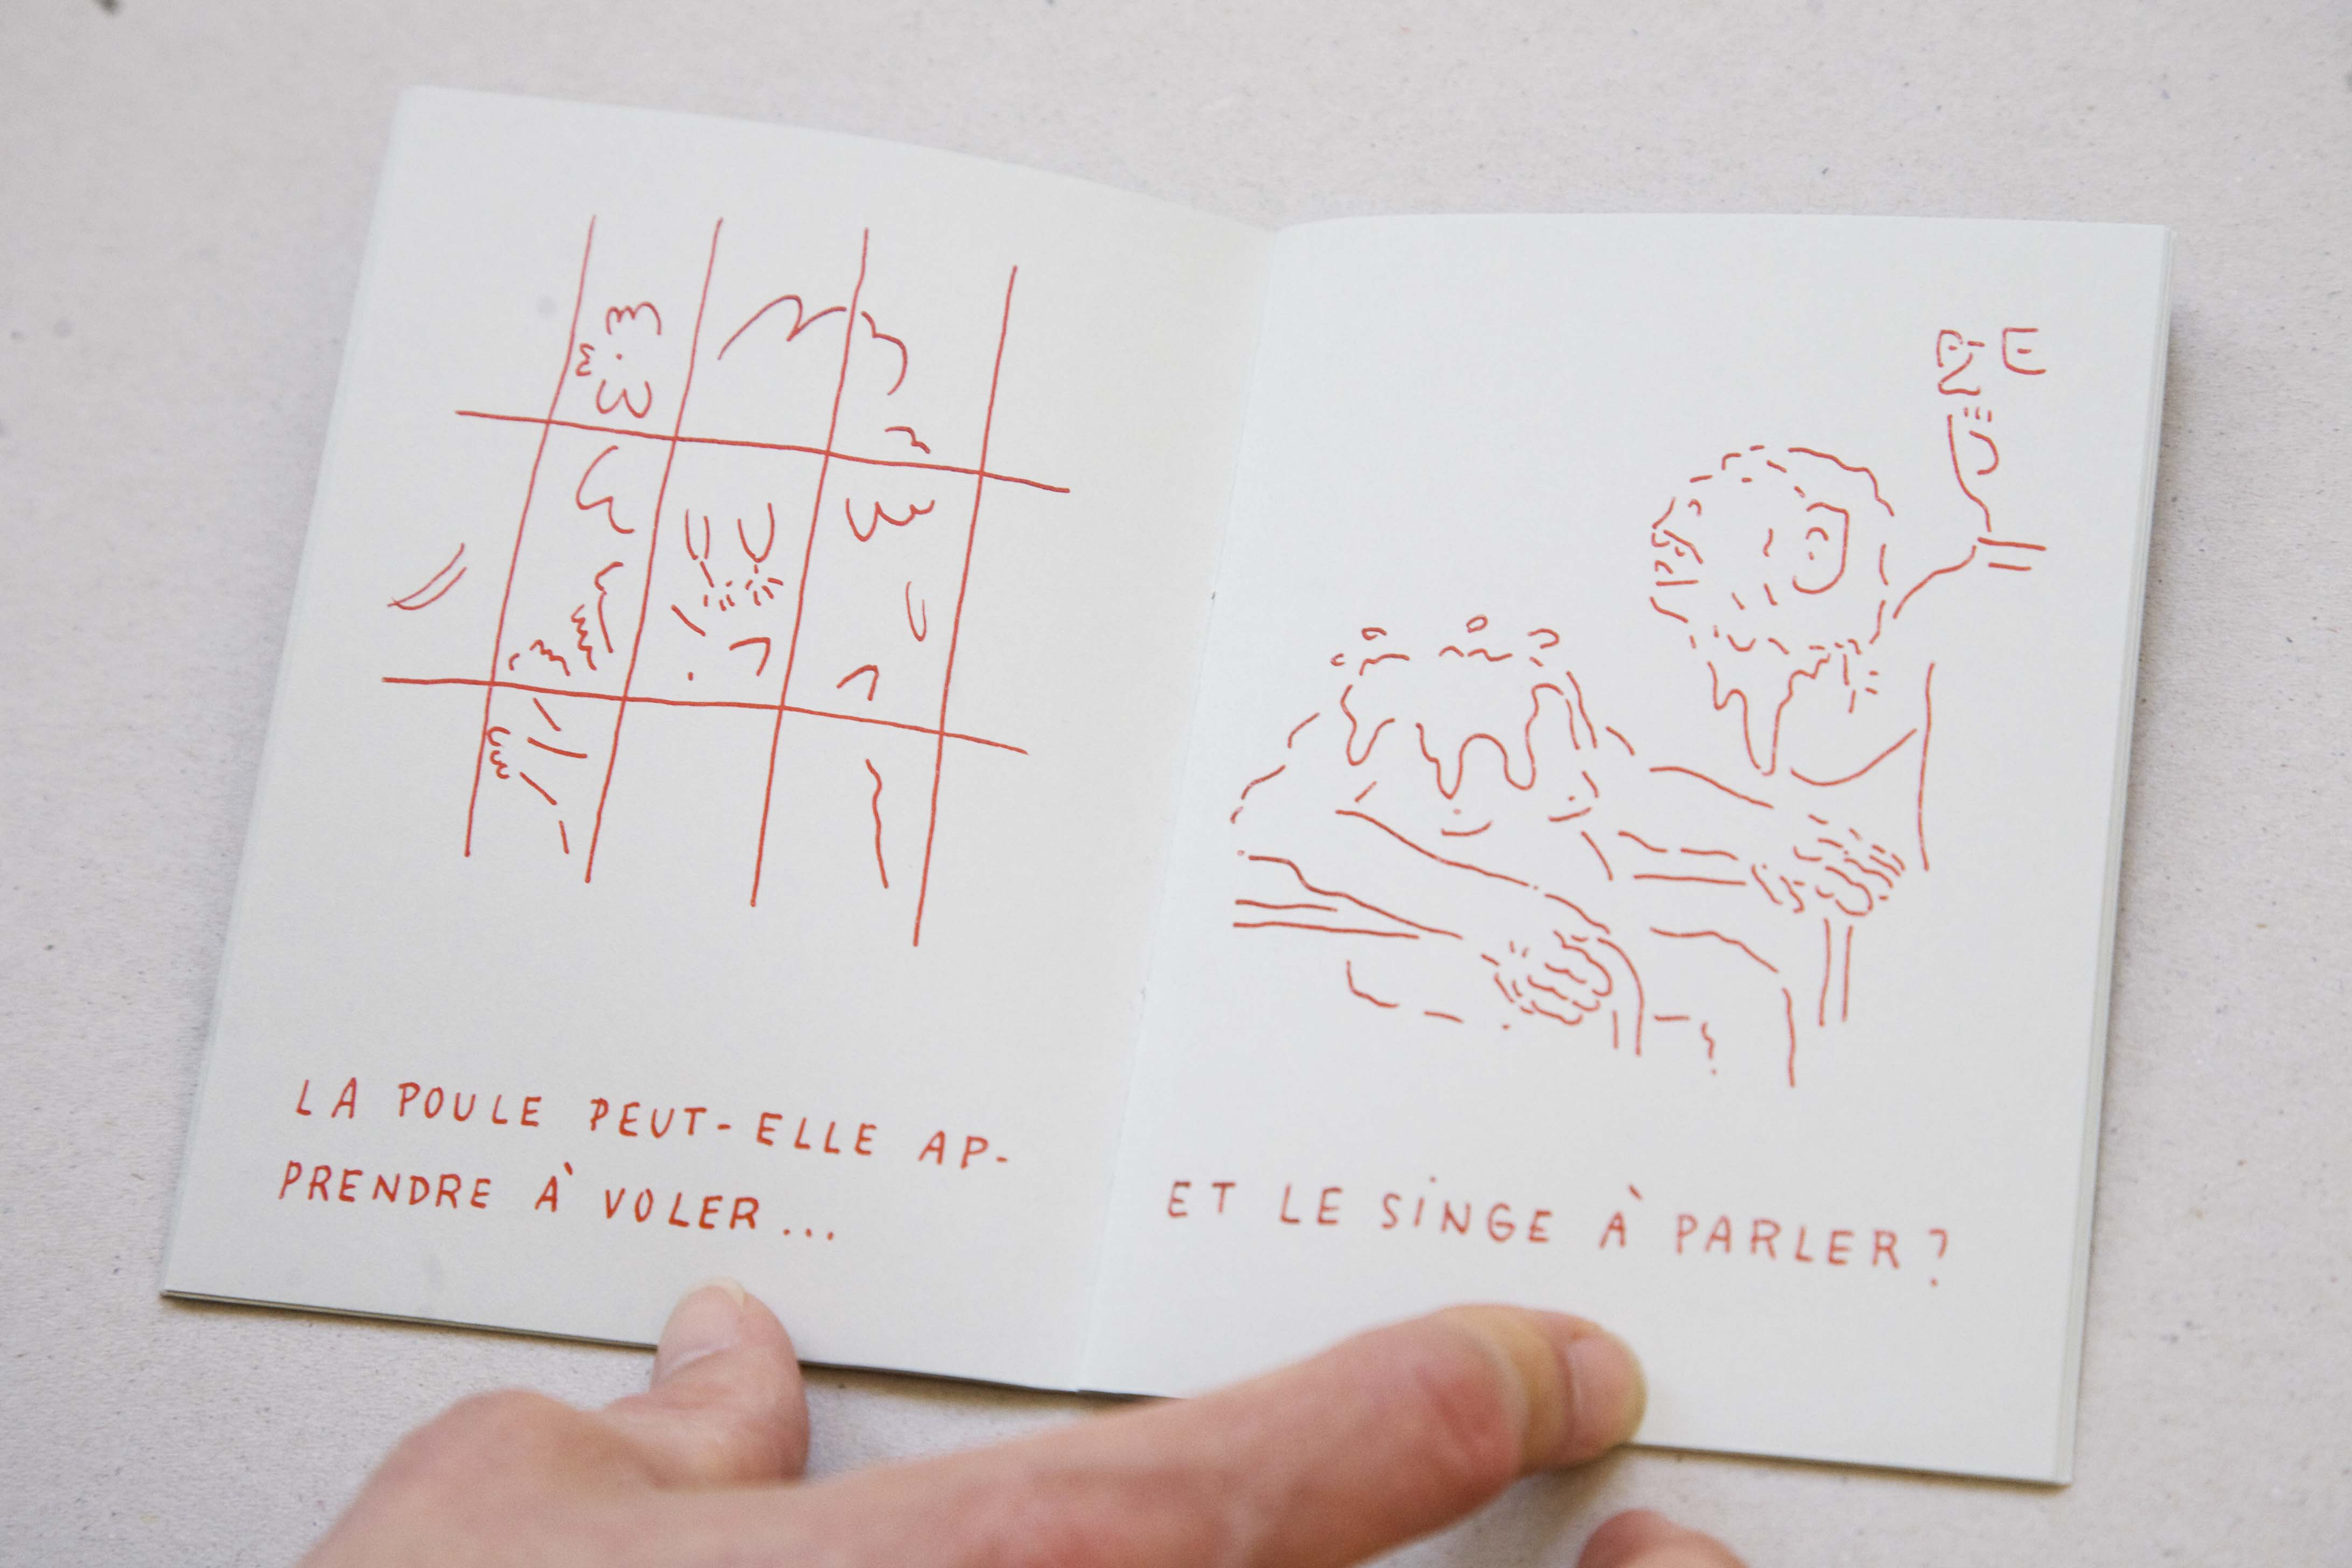 LA POULE PEUT-ELLE AP-
PRENDRE À VOLER...
ET LE SiNGE À PARLER?